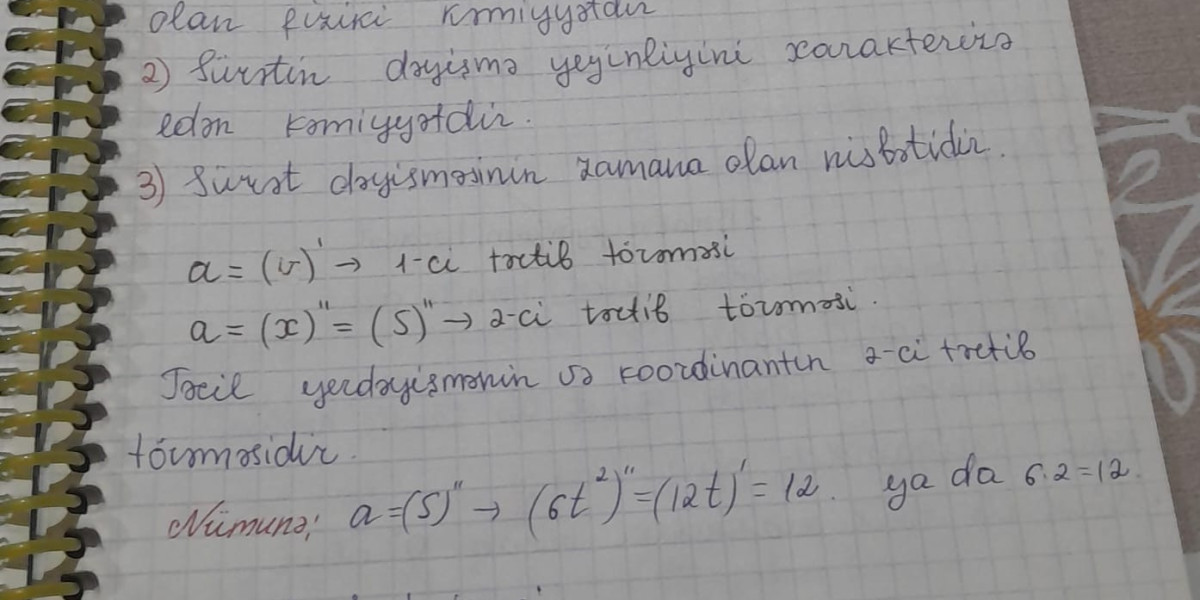 olan fiziki kəmiyyətdir
2) Sürətin dəyişmə yeyinliyini xarakterizə
edən kəmiyyətdir.
3) Sürət dəyişməsinin zamana olan nisbətidir.
a = (v)' → 1-ci tərtib törəməsi
a = (x)'' = (S)'' → 2-ci tərtib törəməsi.
Təcil yerdəyişmənin və koordinantın 2-ci tərtib
törəməsidir.
Nümunə; a = (S)'' → (6t²)'' = (12t)' = 12. ya da 6.2=12.